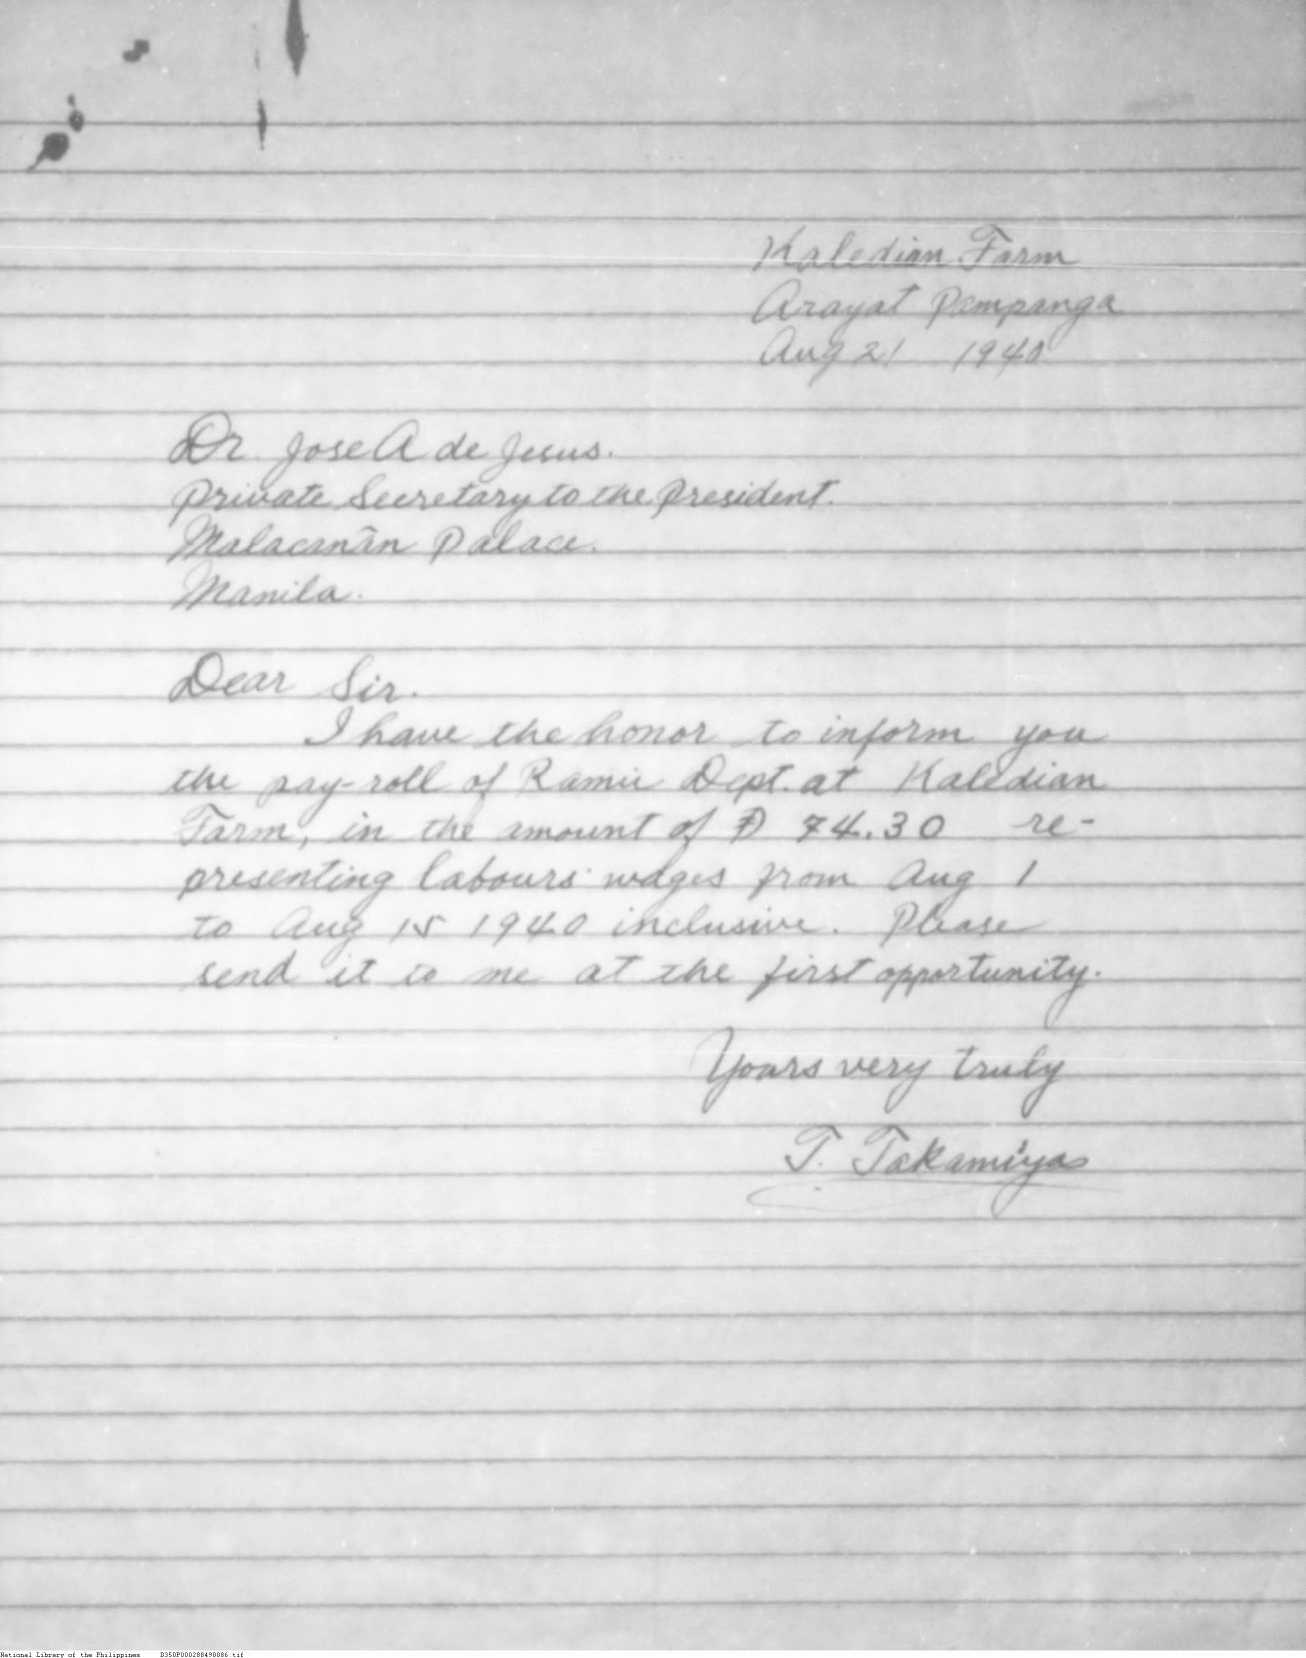 Kaledian Farm
Arayat Pampanga
Aug 21 1940
Dr. Jose A de Jesus.
Private Secretary to the President.
Malacañan Palace.
Manila.
Dear Sir.
I have the honor to inform you
the pay-roll of Ramie Dept. at Kaledian
Farm, in the amount of ₱ 74.30 re-
presenting labours' wages from Aug 1
to Aug 15 1940 inclusive. Please
send it to me at the first opportunity.
Yours very truly
T. Takamiya
National Library of the Philippines D350P000288490086.tif